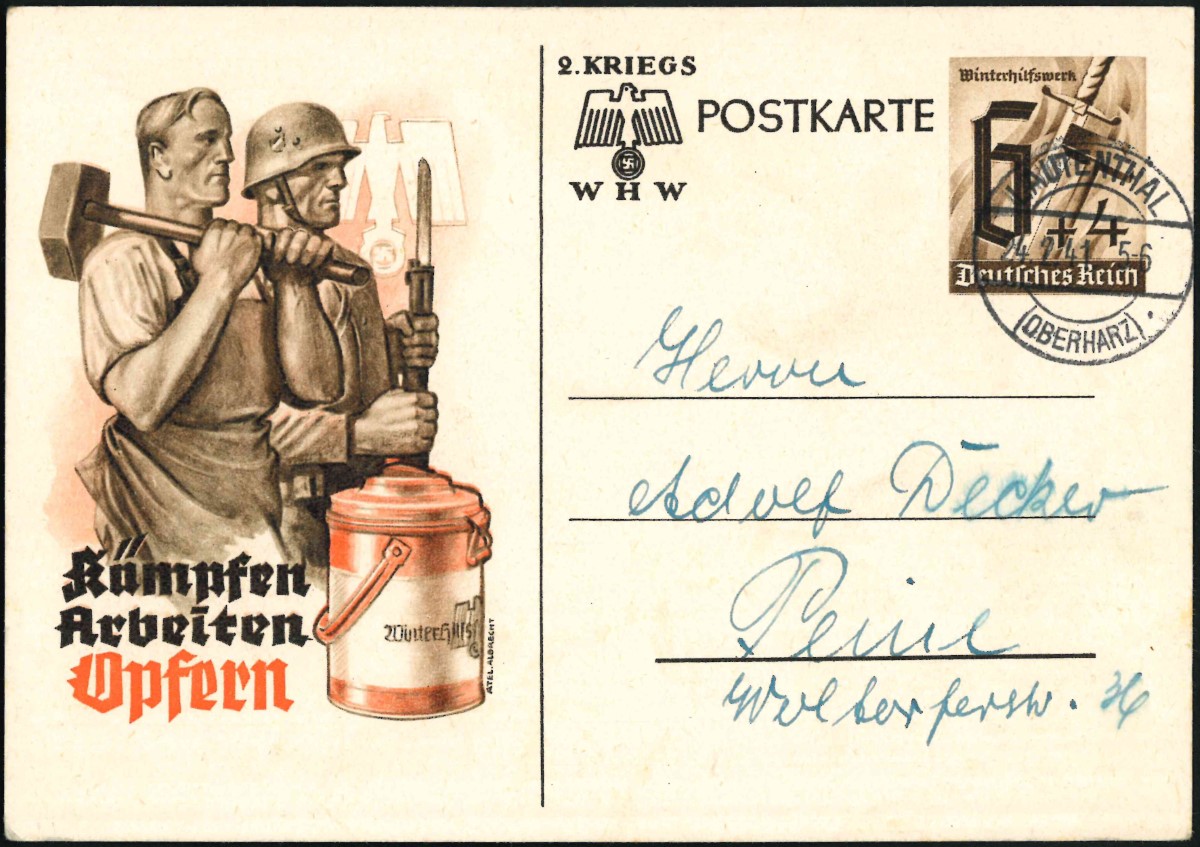 Kämpfen
Arbeiten
Opfern
Winterhilfs
ATEL.ALBRECHT
2. KRIEGS
WHW
POSTKARTE
Winterhilfswerk
6 + 4
Deutsches Reich
LAUTENTHAL
24.2.41 5-6
(OBERHARZ)
Herrn
Adolf Decker
Peine